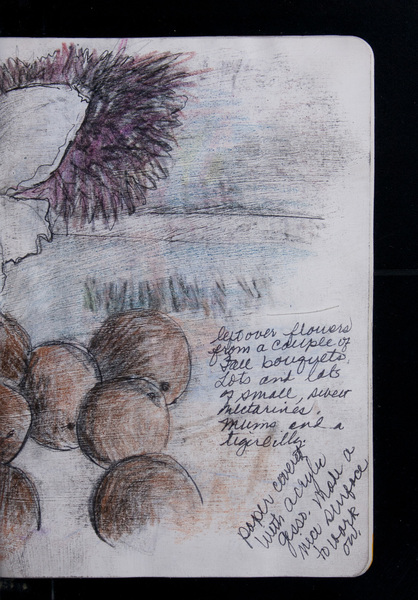 left over flowers
from a couple of
Fall bouquets.
Lots and lots
of small, sweet
nectarines.
Mums and a
tigerlilly.
paper covered
with acrylic
gesso. Made a
nice surface
to work
on!